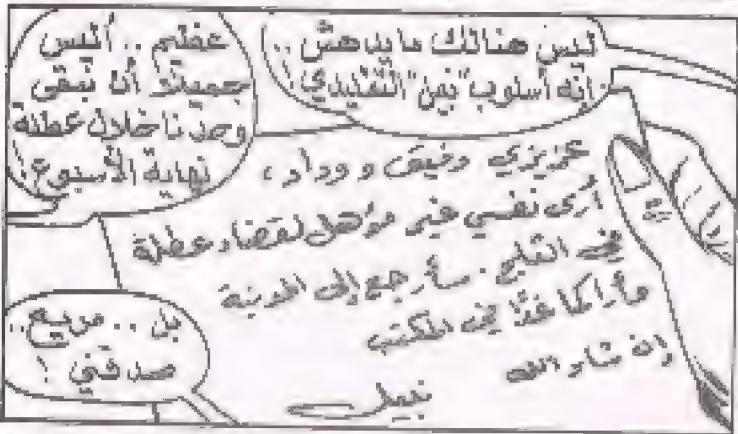 ليس هنالك ما يدهش ..
إنه أسلوب "نبيل" التقليدي !
عظيم .. أليس
جميلاً أن نبقى
وحدنا خلال عطلة
نهاية الأسبوع !
عزيزي رفيق و وداد ،
أرى نفسي غير مؤهل لقضاء عطلة
في الثلج . سأرجع إلى المدينة
وأراكما غدًا في المكتب
إن شاء الله
نبيل
بل .. مريع ..
صدقني !